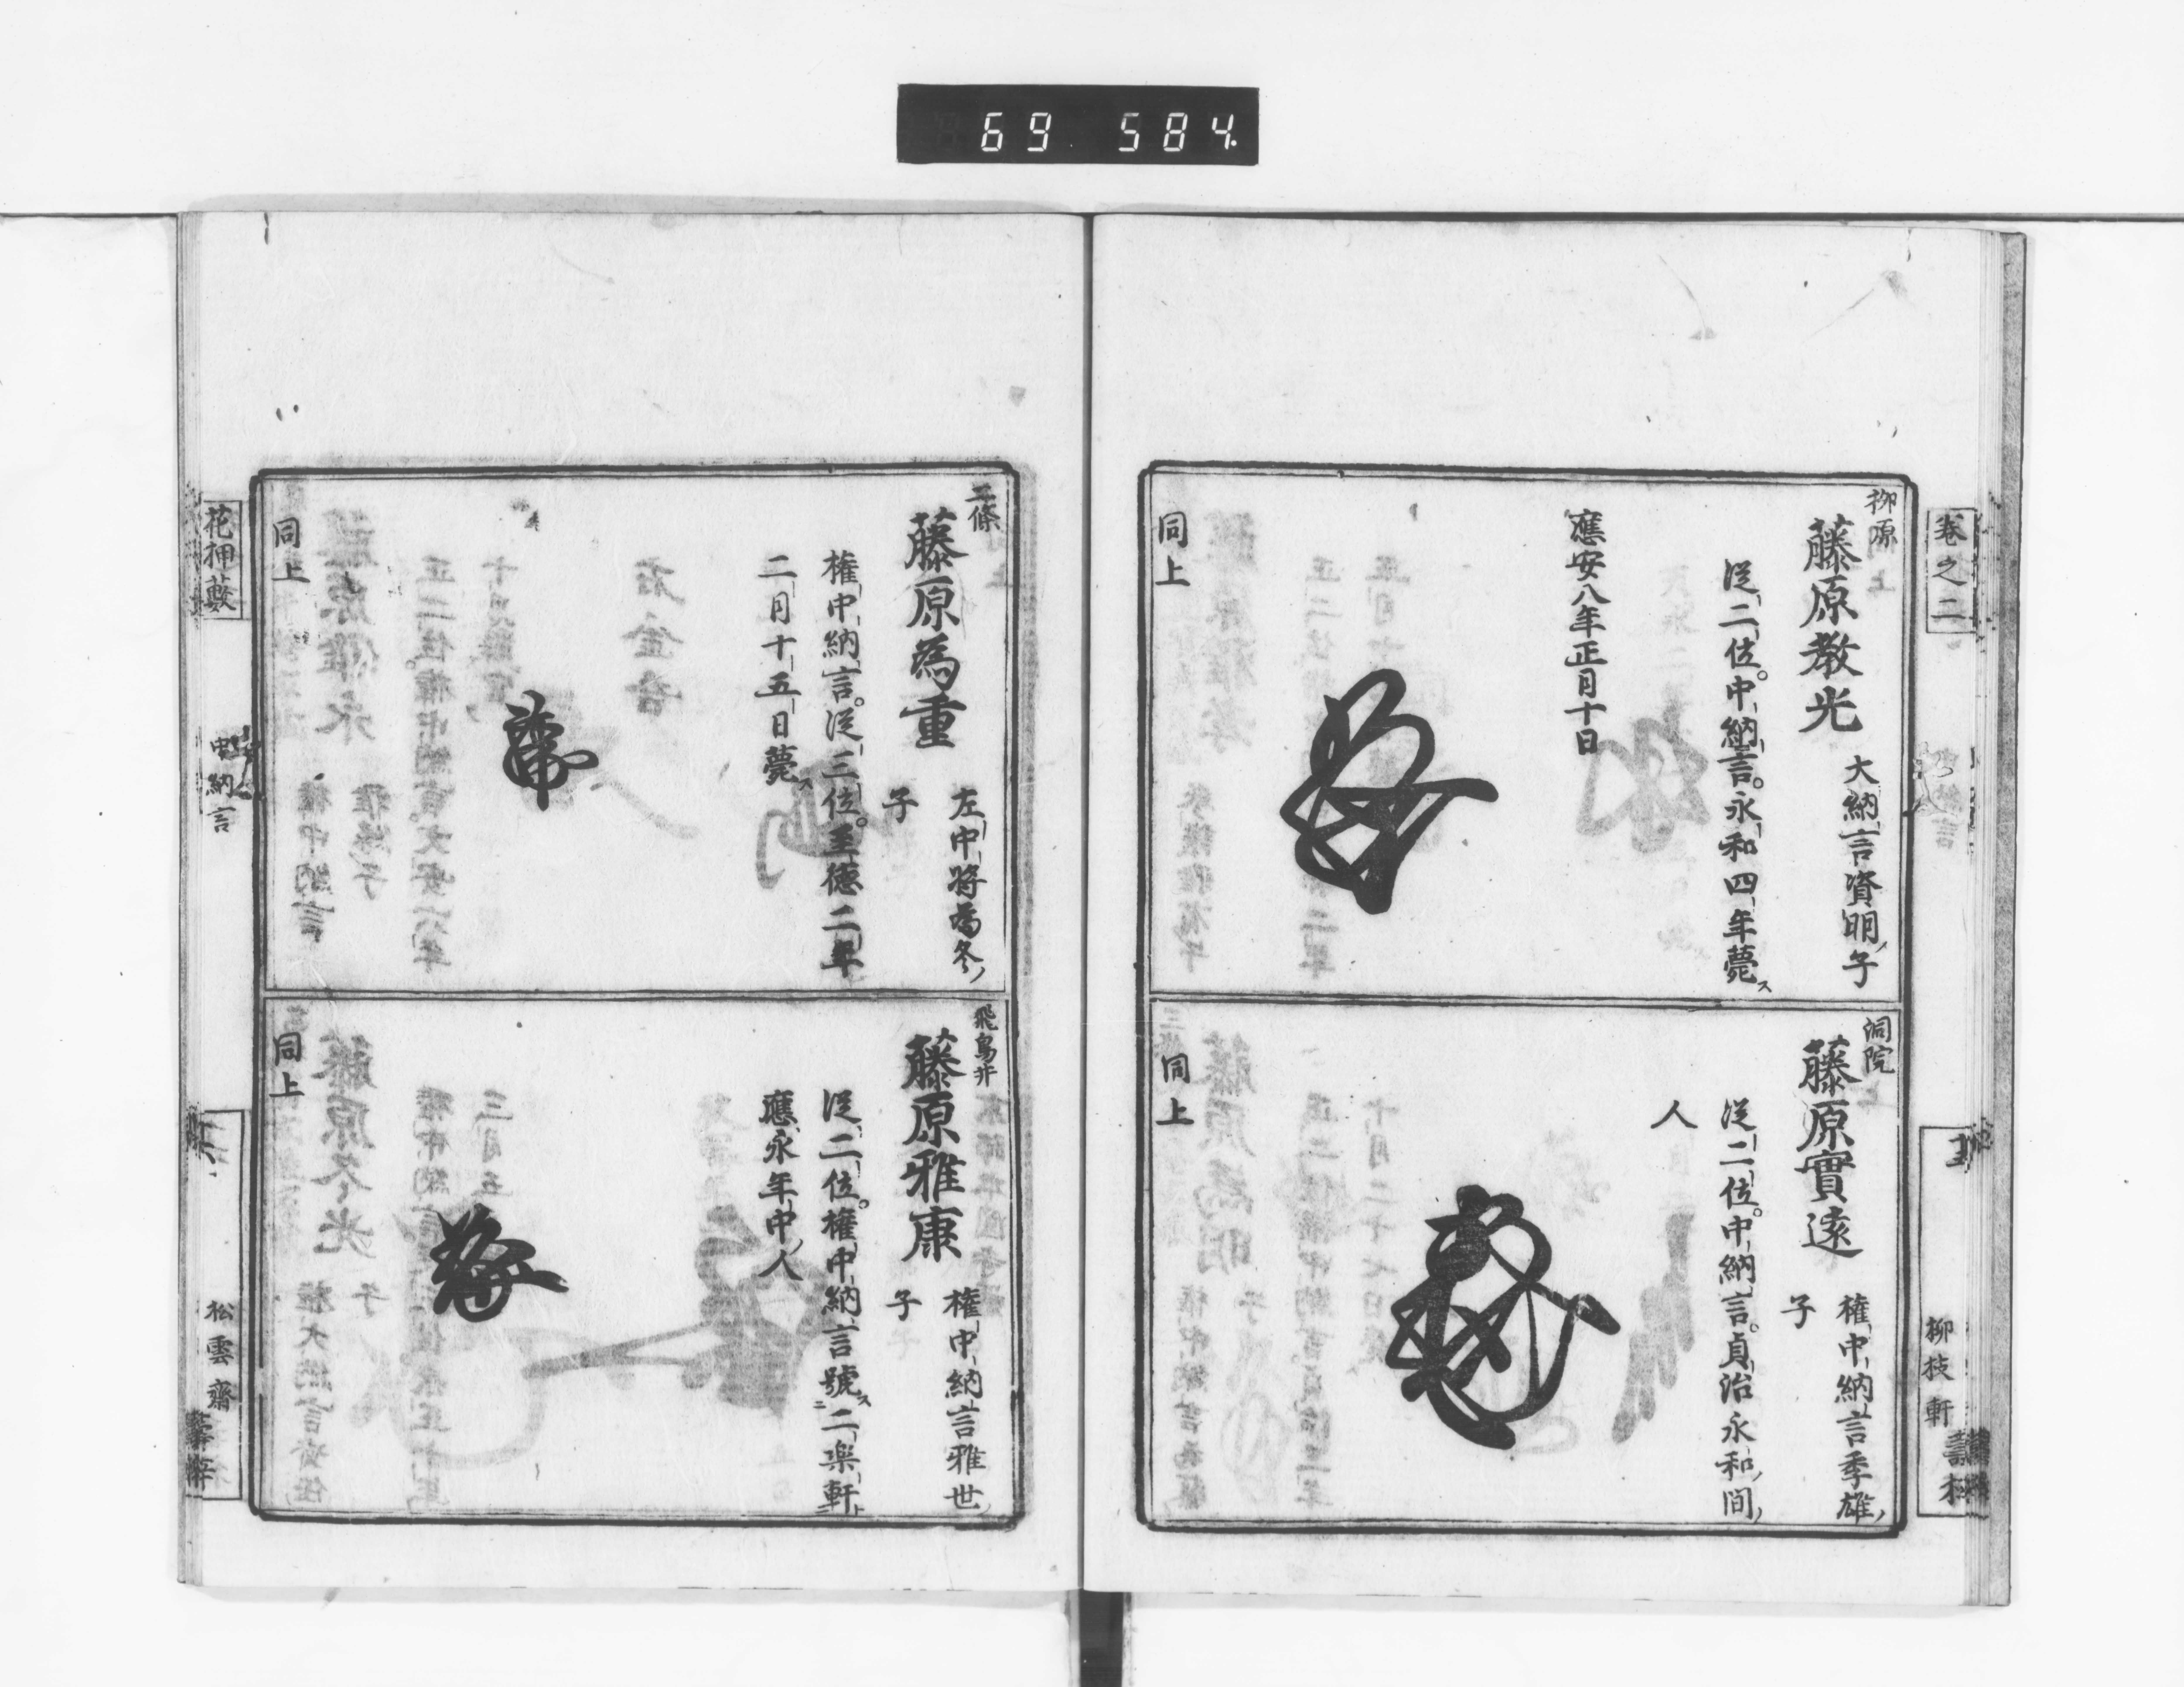 69 584.
卷之二
柳枝軒
柳原
藤原教光
大納言資明子
従二位。中納言。永和四年薨ス
應安八年正月十日
同上
洞院
藤原實遠
權中納言季雄
子
従二位。中納言。貞治永和間
人
同上
二條
藤原為重
左中將為冬
子
權中納言。従三位。至德二年
二月十五日薨ス
同上
飛鳥井
藤原雅康
權中納言雅世
子
従二位。權中納言號ス二楽軒
應永年中人
同上
花押藪
中納言
松雲齋